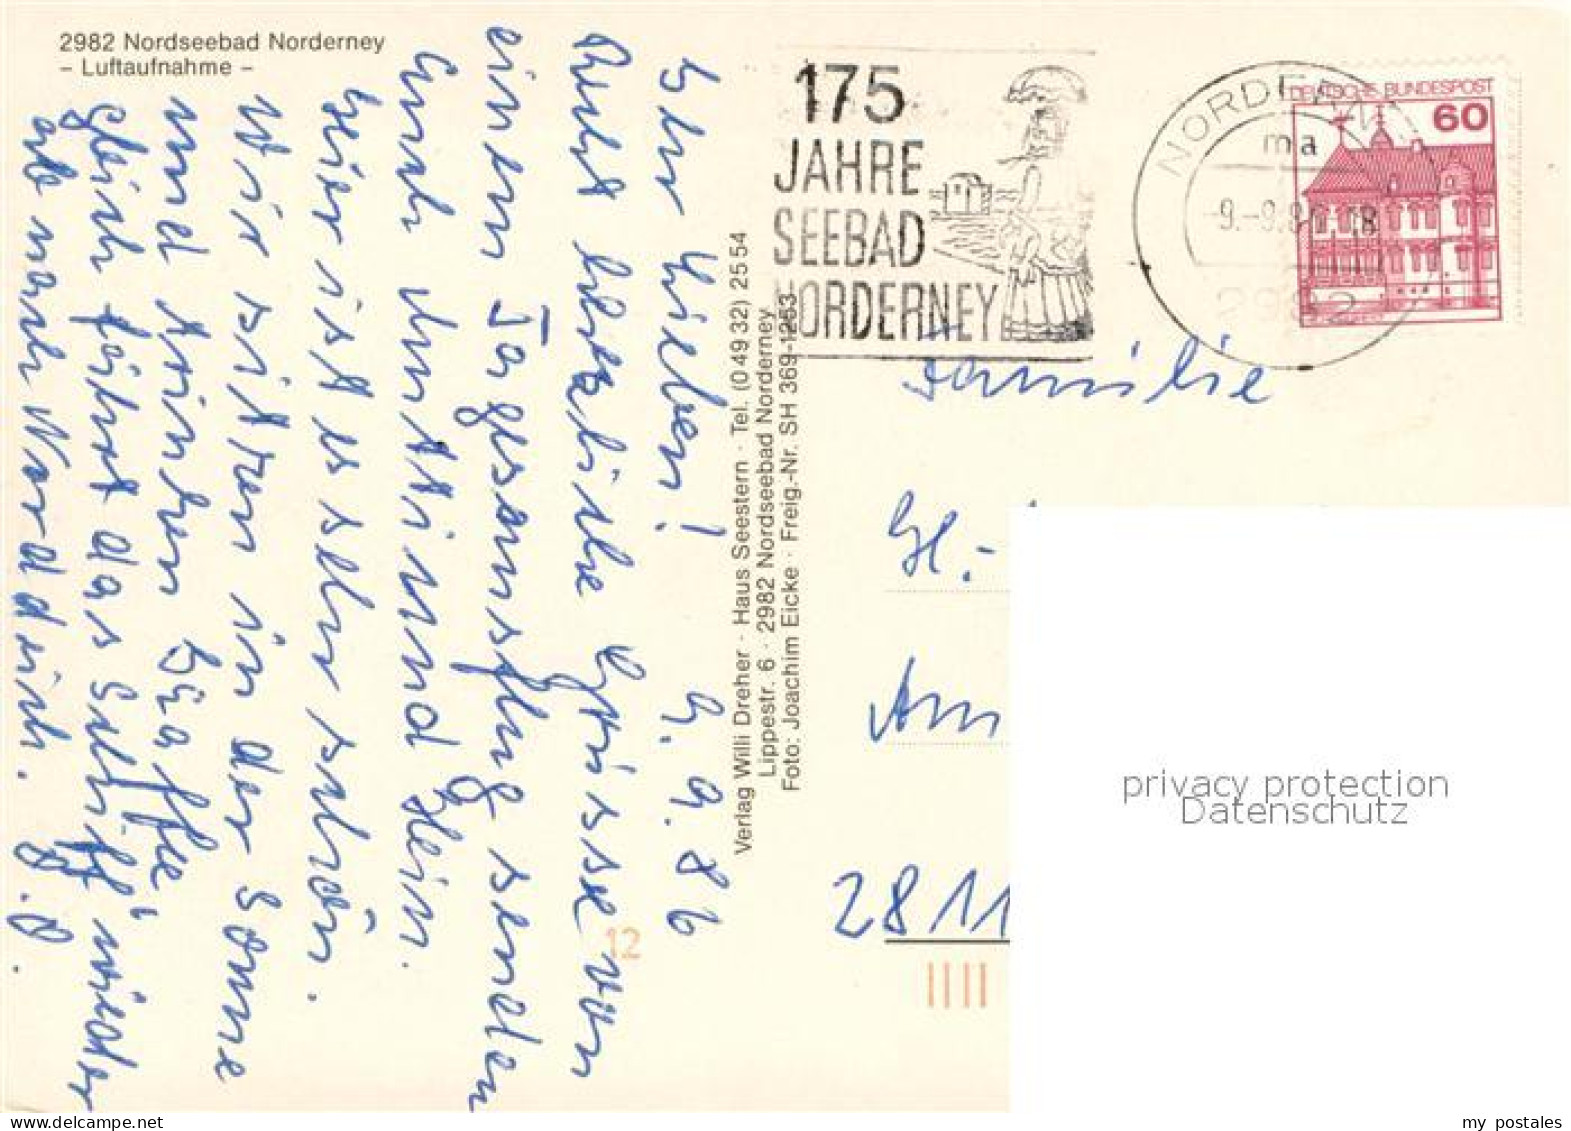 2982 Nordseebad Norderney
– Luftaufnahme –
175
JAHRE
SEEBAD
NORDERNEY
NORDERNEY
ma
-9.-9.86.-18
2982
DEUTSCHE BUNDESPOST
60
Ihr Lieben! 9. 9. 86
Recht herzliche Grüsse von
einem Tagesausflug senden
Euch
und Hein.
Hier ist es sehr schön.
Wir sitzen in der Sonne
und trinken Kaffee
gleich fährt das Schiff wieder
ab nach Norddeich.
Verlag Willi Dreher · Haus Seestern · Tel. (0 49 32) 25 54
Lippestr. 6 · 2982 Nordseebad Norderney
Foto: Joachim Eicke · Freig.-Nr. SH 369-1253
12
Familie
Am
2811
privacy protection
Datenschutz
my_postales